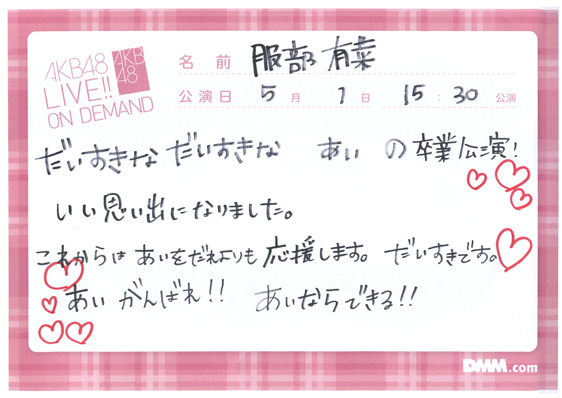 AKB48
LIVE!!
ON DEMAND
AKB
48
名前 服部 有菜
公演日 5月 1日 15:30 公演
だいすきな だいすきな あい の 卒業公演!
いい思い出になりました。
これからは あいをだれよりも 応援します。 だいすきです。
あい がんばれ!! あいならできる!!
DMM.com